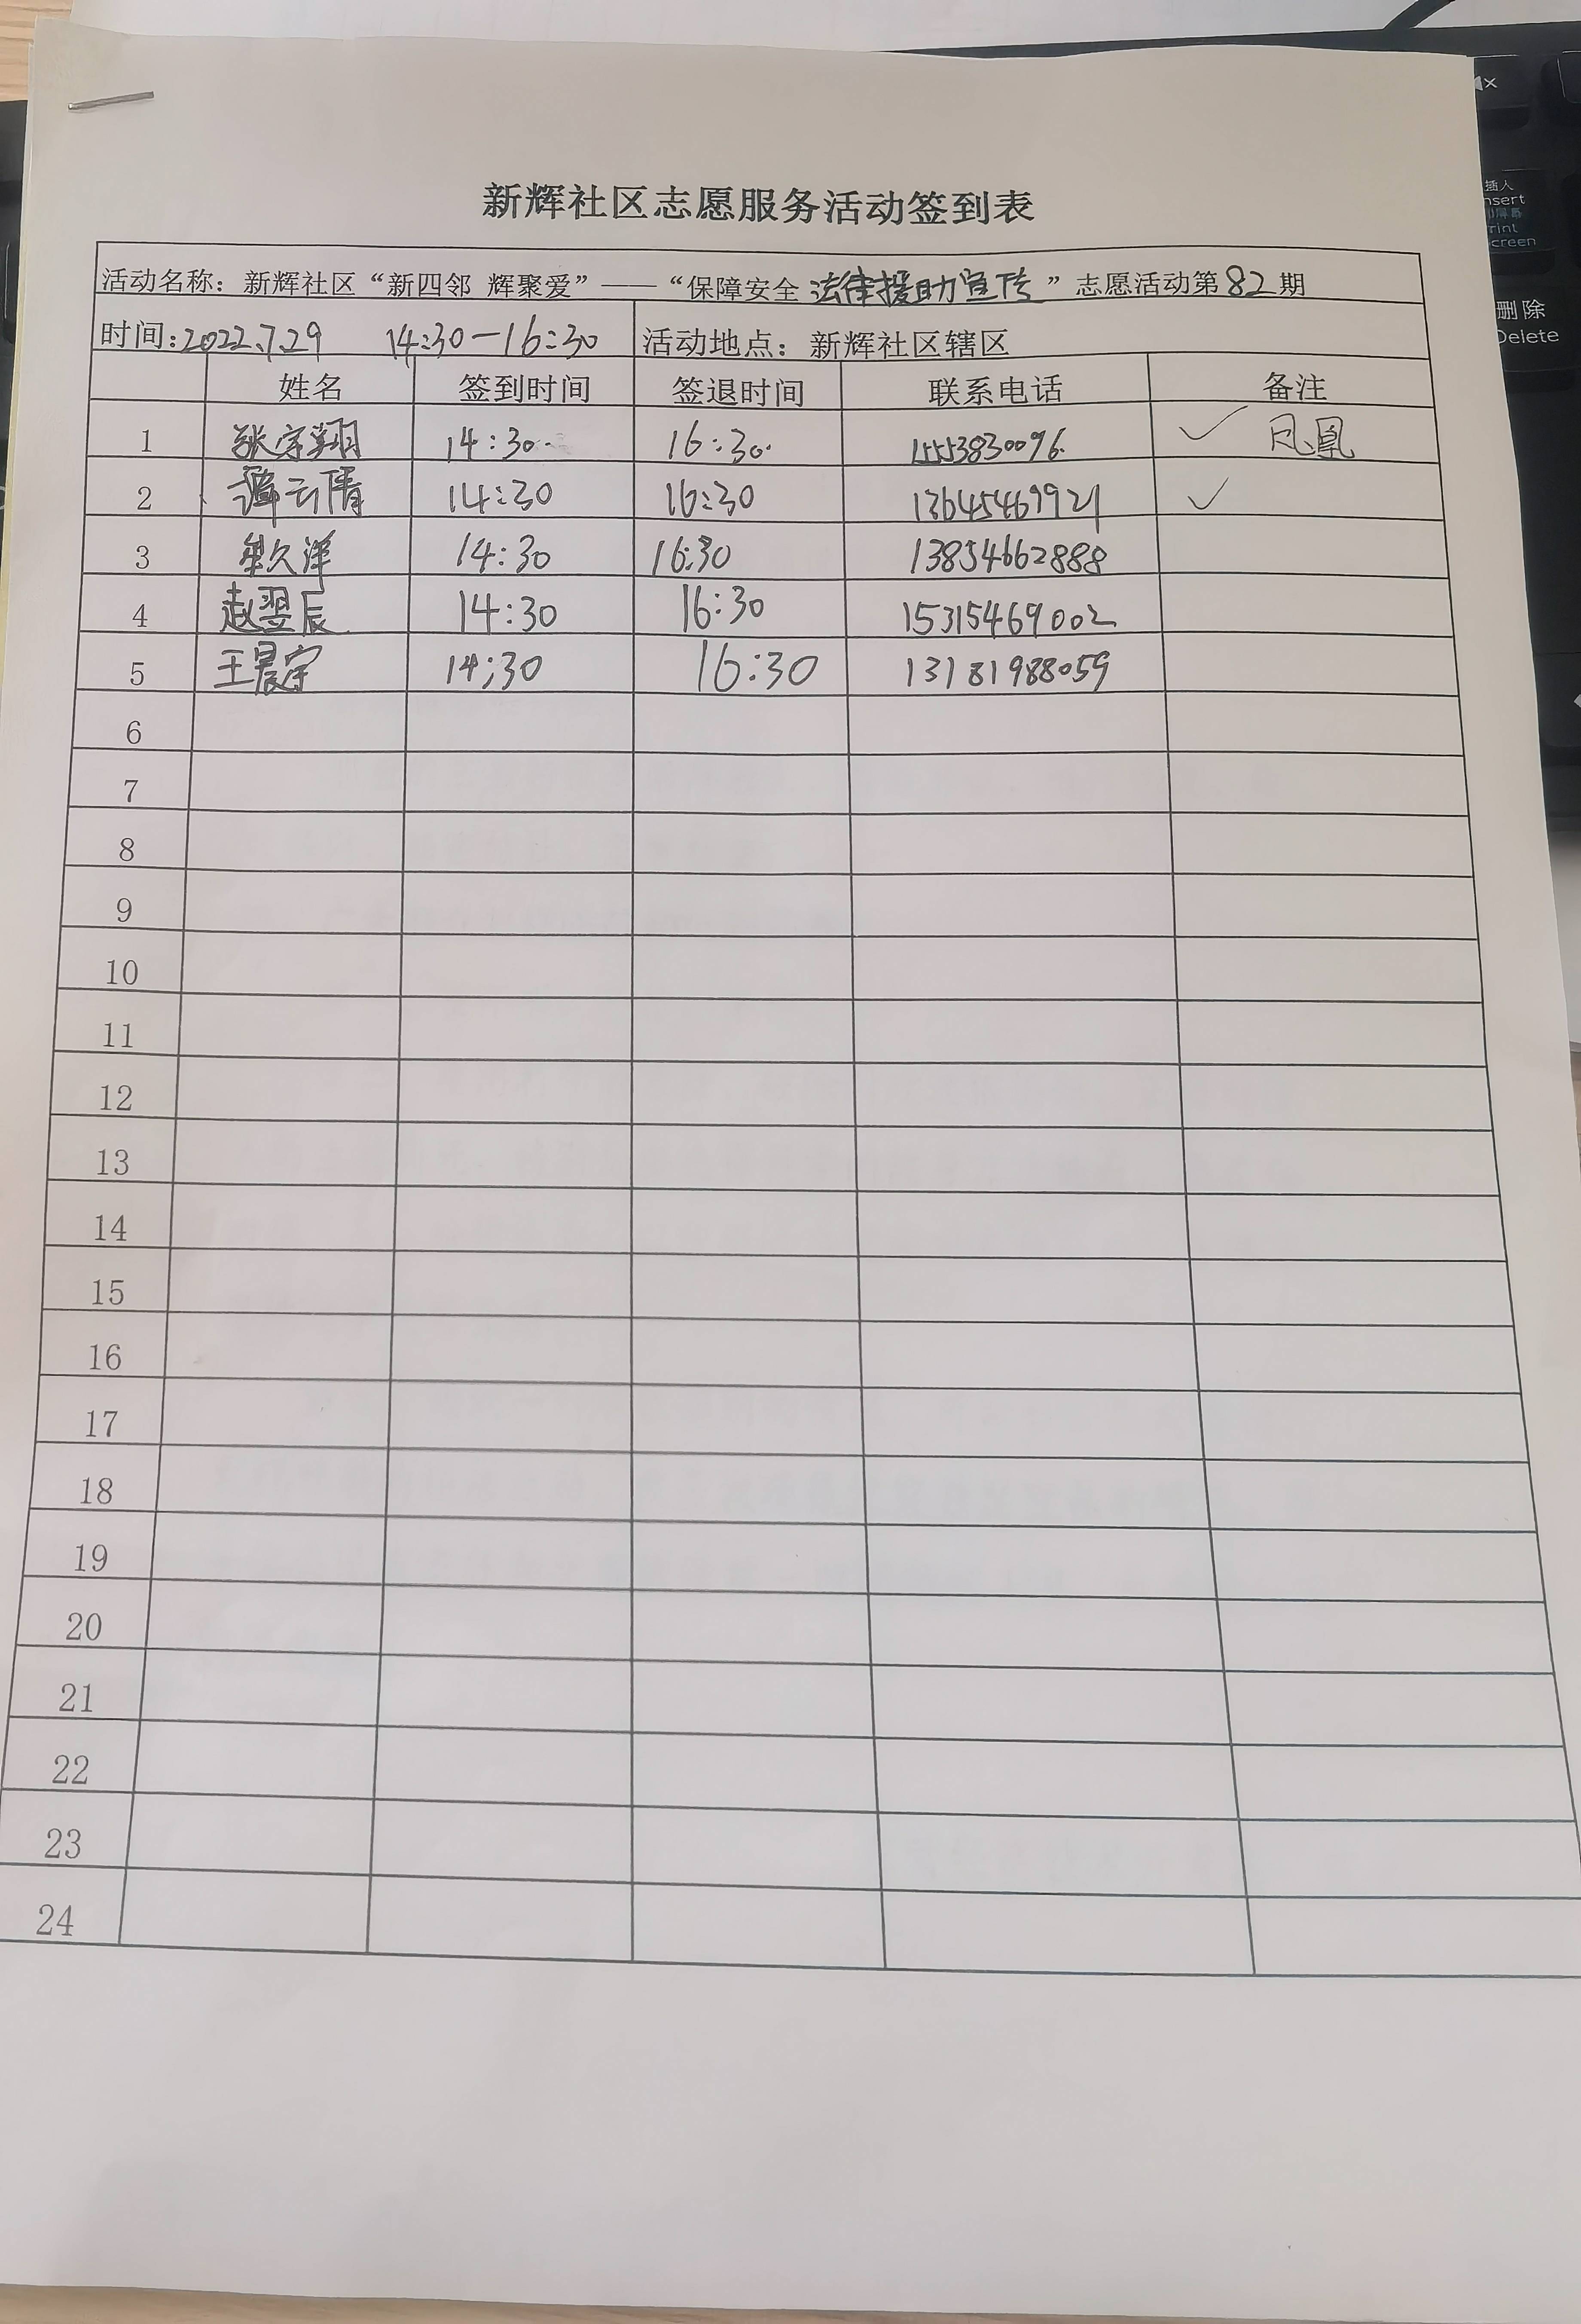 新辉社区志愿服务活动签到表
活动名称：新辉社区“新四邻 辉聚爱”——“保障安全 法律援助宣传”志愿活动第82期
时间：2022.7.29 14:30—16:30 活动地点：新辉社区辖区
姓名 签到时间 签退时间 联系电话 备注
1 张宇翔 14:30 16:30 15553830096 ✓ 凤凰
2 谭云倩 14:30 16:30 13645469921 ✓
3 久洋 14:30 16:30 13854662888
4 赵翌辰 14:30 16:30 15315469002
5 王晨宇 14:30 16:30 13181988059
6
7
8
9
10
11
12
13
14
15
16
17
18
19
20
21
22
23
24
插入
nsert
rint
creen
删除
Delete